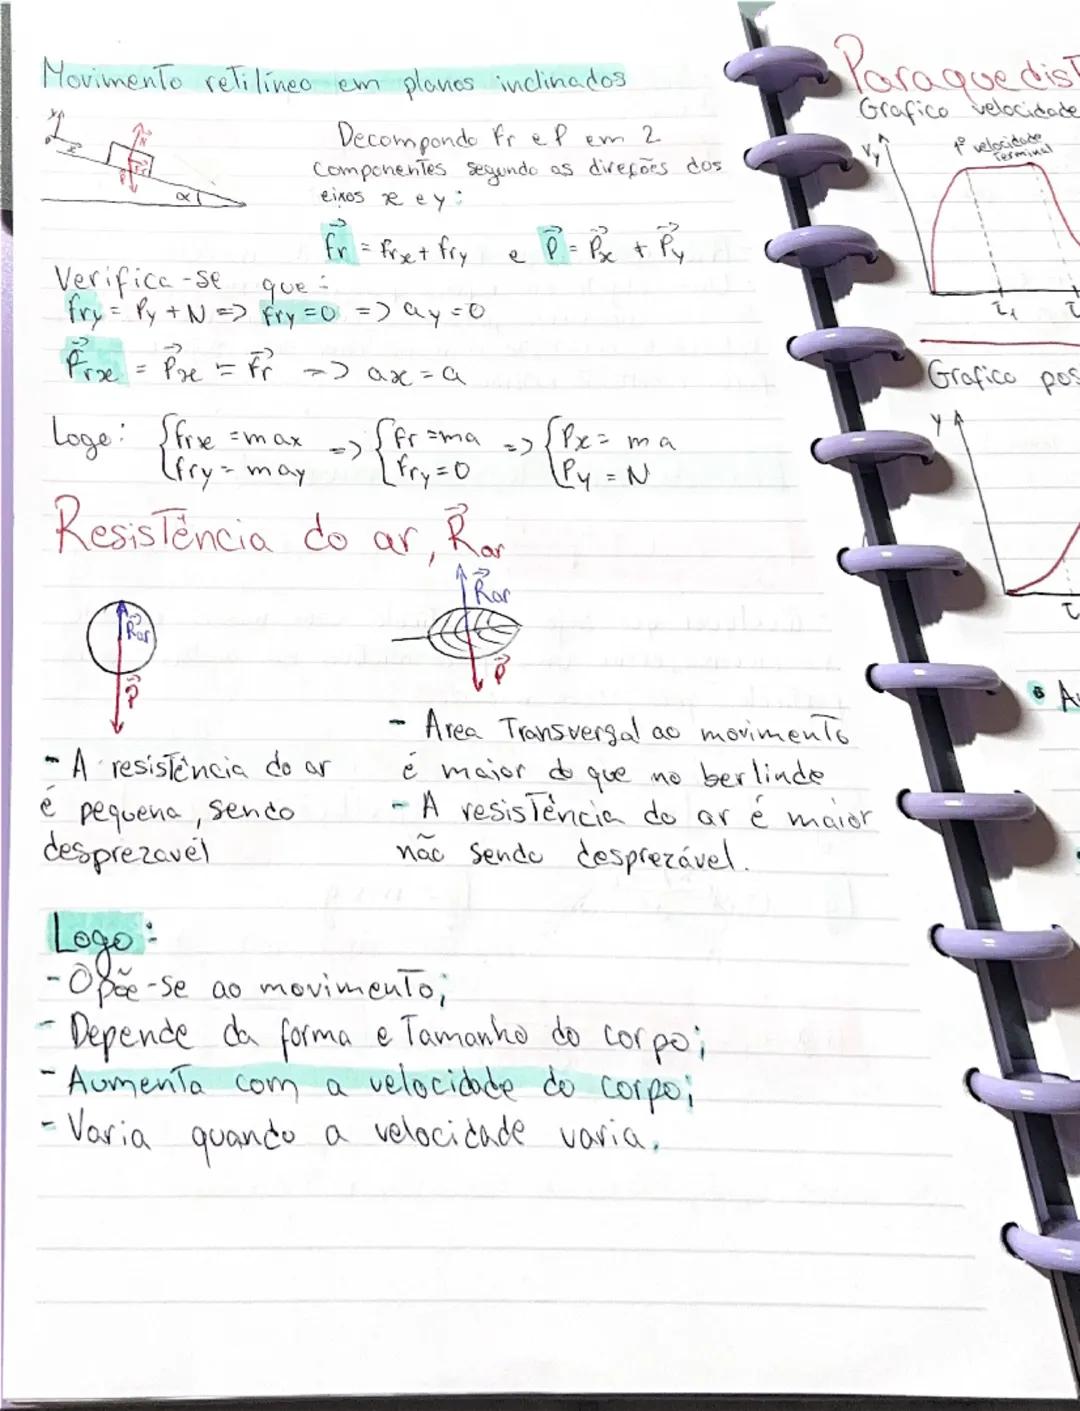 Movimento retilíneo em planos inclinados
y
N
Fr
P
α
Decompondo Fr e P em 2
componentes segundo as direções dos
eixos x e y:
Fr = Frx + Fry e P = Px + Py
Verifica-se que:
Fry = Py + N => Fry = 0 => ay = 0
Frx = Px = Fr => ax = a
Logo: {Frx = max => {Fr = ma => {Px = ma
{Fry = may {Fry = 0 {Py = N
Resistência do ar, Rar
Rar
P
Rar
P
- A resistência do ar
é pequena, sendo
desprezavél
- Area Transversal ao movimento
é maior do que no berlinde
- A resistência do ar é maior
não sendo desprezável.
Logo:
- Opõe-se ao movimento;
- Depende da forma e Tamanho do corpo;
- Aumenta com a velocidade do corpo;
- Varia quando a velocidade varia.
Paraquedist
Grafico velocidade
Vy
1ª velocidade
Terminal
t1
t
Grafico pos
y
t